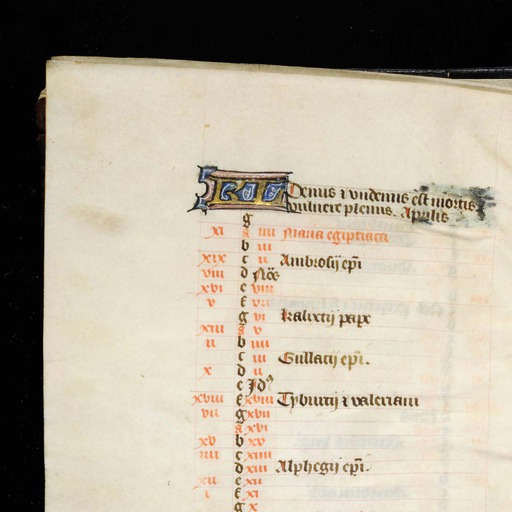 KL Denus ⁊ vndenus est mortis
vulnere plenus. Aprilis
g
xi A iiii Maria egiptiaca
b iii
xix c ii Ambrosij ep̄i
viii d Noñ
xvi e viii
v f vii
g vi Kalixtij pape
xiii A v
ii b iiii
c iii Gullacij ep̄i.
x d ii
e Jdꝰ
xviii f xviii Tyburtij ⁊ valeriani
vii g xvii
A xvi
xv b xv
iiii c xiiii
d xiii Alphegij ep̄i.
xii e xii
i f xi
g x